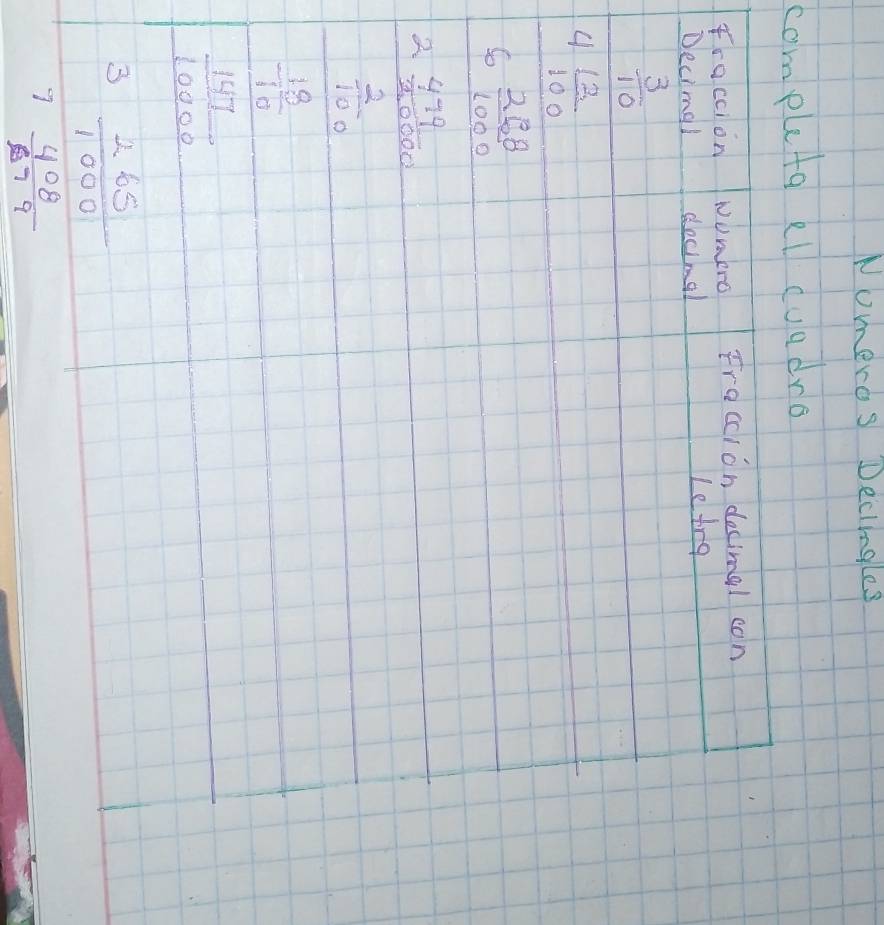 Numeros Decimales
completa el cuadro
Fracción Decimal | Numero decimal | Fracción decimal con Letra
3/10
4 12/100
6 288/1000
2 479/10000
2/100
18/10
147/10000
3 265/1000
7 408/